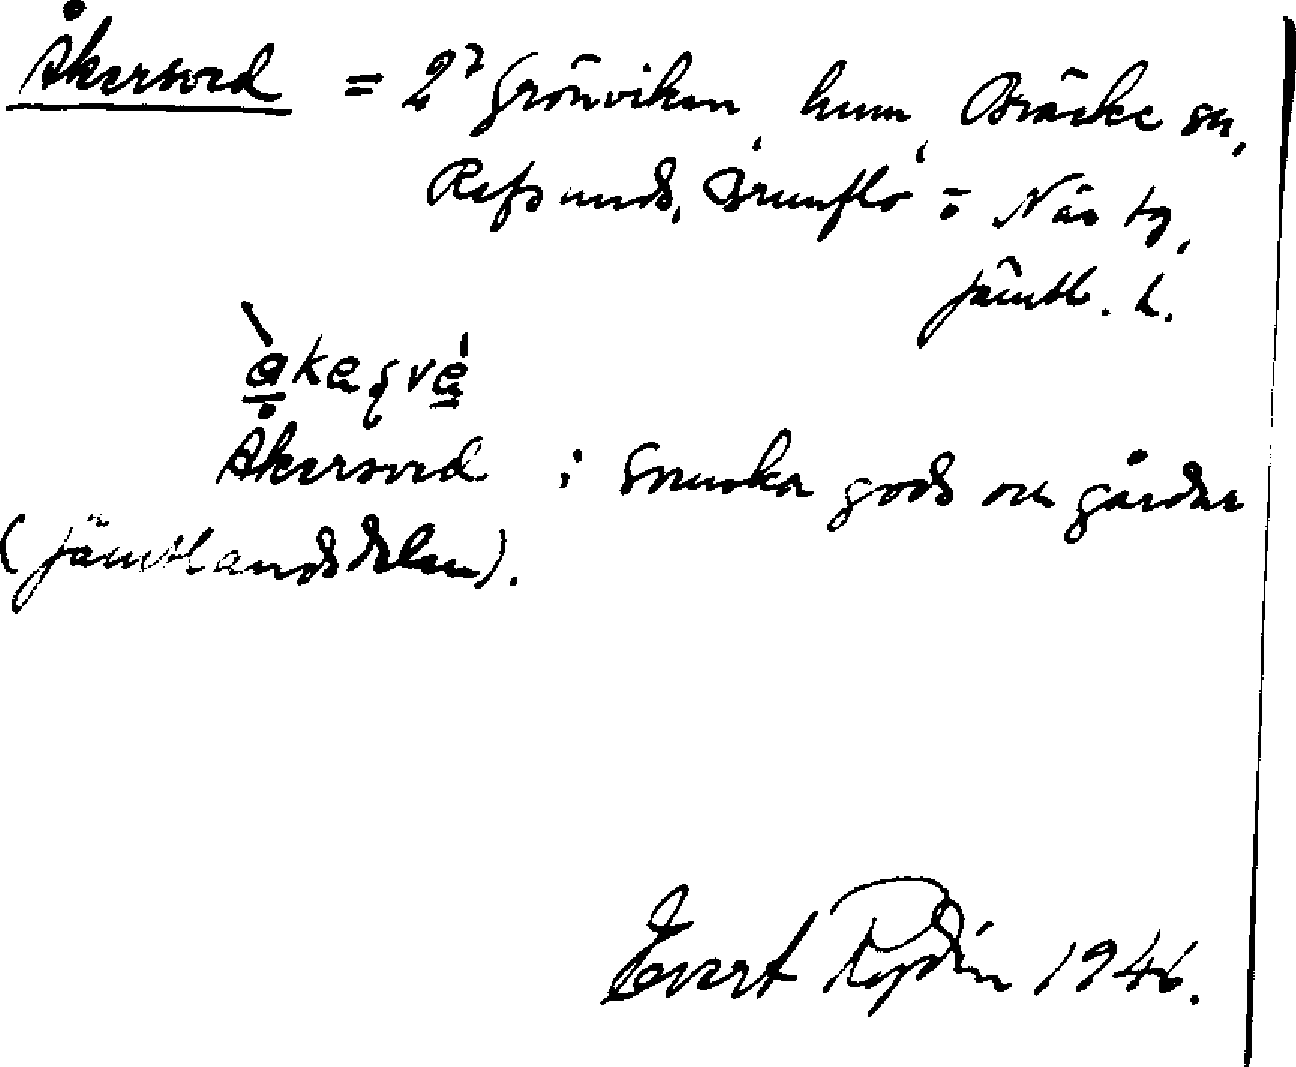 Åkersved = 2⁷ Grönviken, hem, Bräcke sn,
Refsunds, Brunflo o Näs tg,
Jämtl. l.
Åkersved i Svenska gods och gårdar
(Jämtlandsdelen).
Evert Rydin 1946.